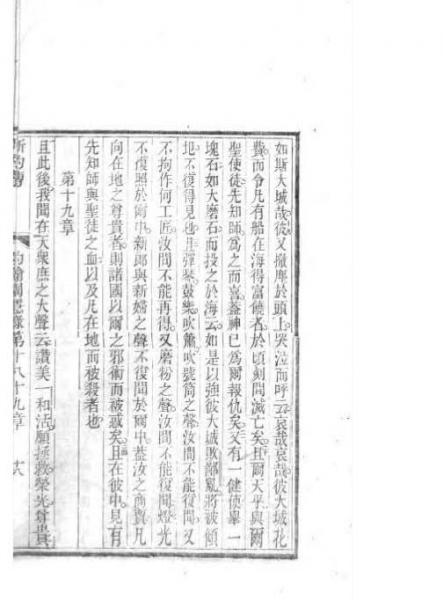 如斯大城哉彼又撒塵於頭上哭泣而呼云哀哉哀哉彼大城花
費而令凡有船在海得富饒者於頃刻間滅亡矣且爾天乎與爾
聖使徒先知師為之而喜蓋神已為爾報仇矣又有一健使舉一
塊石如大磨石而投之於海云如是以強彼大城敗鄙亂將被傾
圮不復得見也且彈琴鼓樂吹簫吹號筒之聲汝間不能復聞又
不拘作何工匠汝間不能再得又磨粉之聲汝間不能復聞燈光
不復照於爾中新郎與新婦之聲不復聞於爾中蓋汝之商賈凡
向在地之尊貴者則諸國以爾之邪術而被惑矣且在彼中見有
先知師與聖徒之血以及凡在地而被殺者也
第十九章
且此後我聞在天眾庶之大聲云讚美一和活願拯救榮光尊貴
第十八十九章